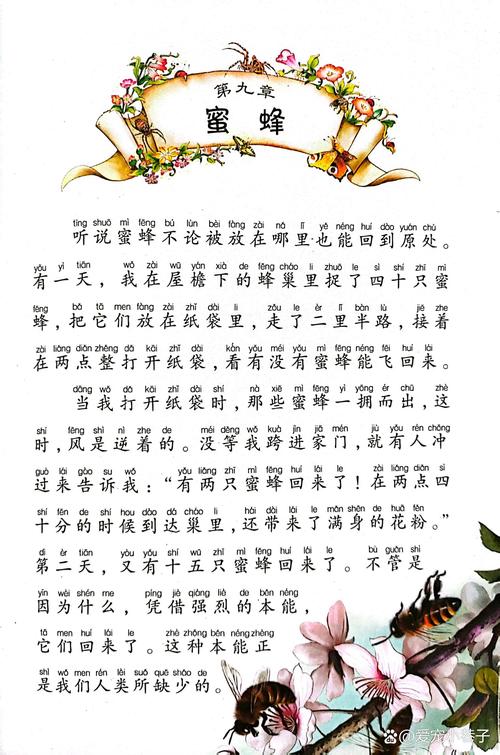 第九章
蜜蜂
tīng shuō mì fēng bú lùn bèi fàng zài nǎ lǐ yě néng huí dào yuán chù
听说蜜蜂不论被放在哪里也能回到原处。
yǒu yì tiān wǒ zài wū yán xià de fēng cháo lǐ zhuō le sì shí zhī mì
有一天，我在屋檐下的蜂巢里捉了四十只蜜
fēng bǎ tā men fàng zài zhǐ dài lǐ zǒu le èr lǐ bàn lù jiē zhe
蜂，把它们放在纸袋里，走了二里半路，接着
zài liǎng diǎn zhěng dǎ kāi zhǐ dài kàn yǒu méi yǒu mì fēng néng fēi huí lái
在两点整打开纸袋，看有没有蜜蜂能飞回来。
dāng wǒ dǎ kāi zhǐ dài shí nà xiē mì fēng yì yōng ér chū zhè
当我打开纸袋时，那些蜜蜂一拥而出，这
shí fēng shì nì zhe de méi děng wǒ kuà jìn jiā mén jiù yǒu rén chōng
时，风是逆着的。没等我跨进家门，就有人冲
guò lái gào su wǒ yǒu liǎng zhī mì fēng huí lái le zài liǎng diǎn sì
过来告诉我：“有两只蜜蜂回来了！在两点四
shí fēn de shí hou dào dá cháo lǐ hái dài lái le mǎn shēn de huā fěn
十分的时候到达巢里，还带来了满身的花粉。”
dì èr tiān yòu yǒu shí wǔ zhī mì fēng huí lái le bù guǎn shì
第二天，又有十五只蜜蜂回来了。不管是
yīn wèi shén me píng jiè qiáng liè de běn néng
因为什么，凭借强烈的本能，
tā men huí lái le zhè zhǒng běn néng zhèng
它们回来了。这种本能正
shì wǒ men rén lèi suǒ quē shǎo de
是我们人类所缺少的。
@爱宠